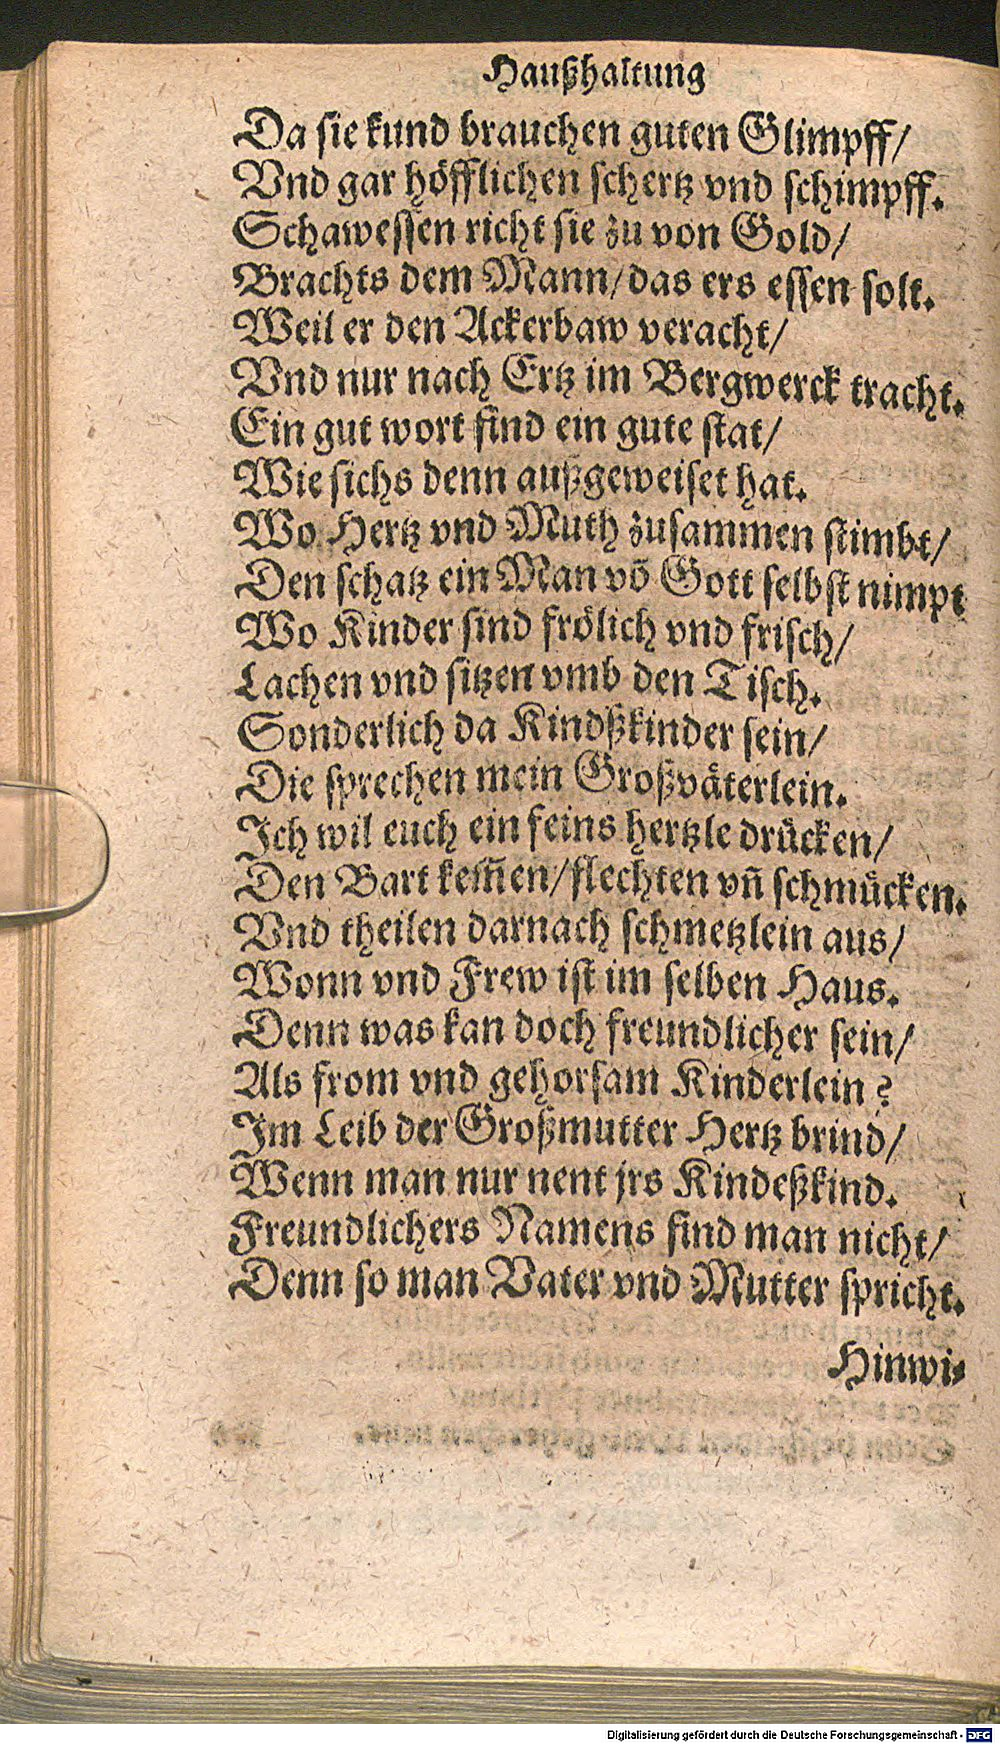 Haußhaltung
Da sie kund brauchen guten Glimpff/
Vnd gar höfflichen schertz vnd schimpff.
Schawessen richt sie zu von Gold/
Brachts dem Mann/das ers essen solt.
Weil er den Ackerbaw veracht/
Vnd nur nach Ertz im Bergwerck tracht.
Ein gut wort find ein gute stat/
Wie sichs denn außgeweiset hat.
Wo Hertz vnd Muth zusammen stimbt/
Den schatz ein Man võ Gott selbst nimpt
Wo Kinder sind frölich vnd frisch/
Lachen vnd sitzen vmb den Tisch.
Sonderlich da Kindßkinder sein/
Die sprechen mein Großväterlein.
Ich wil euch ein feins hertzle drücken/
Den Bart kem̃en/flechten vñ schmücken.
Vnd theilen darnach schmetzlein aus/
Wonn vnd Frew ist im selben Haus.
Denn was kan doch freundlicher sein/
Als from vnd gehorsam Kinderlein?
Im Leib der Großmutter Hertz brind/
Wenn man nur nent jrs Kindeßkind.
Freundlichers Namens find man nicht/
Denn so man Vater vnd Mutter spricht.
Hinwi⸗
Digitalisierung gefördert durch die Deutsche Forschungsgemeinschaft - DFG